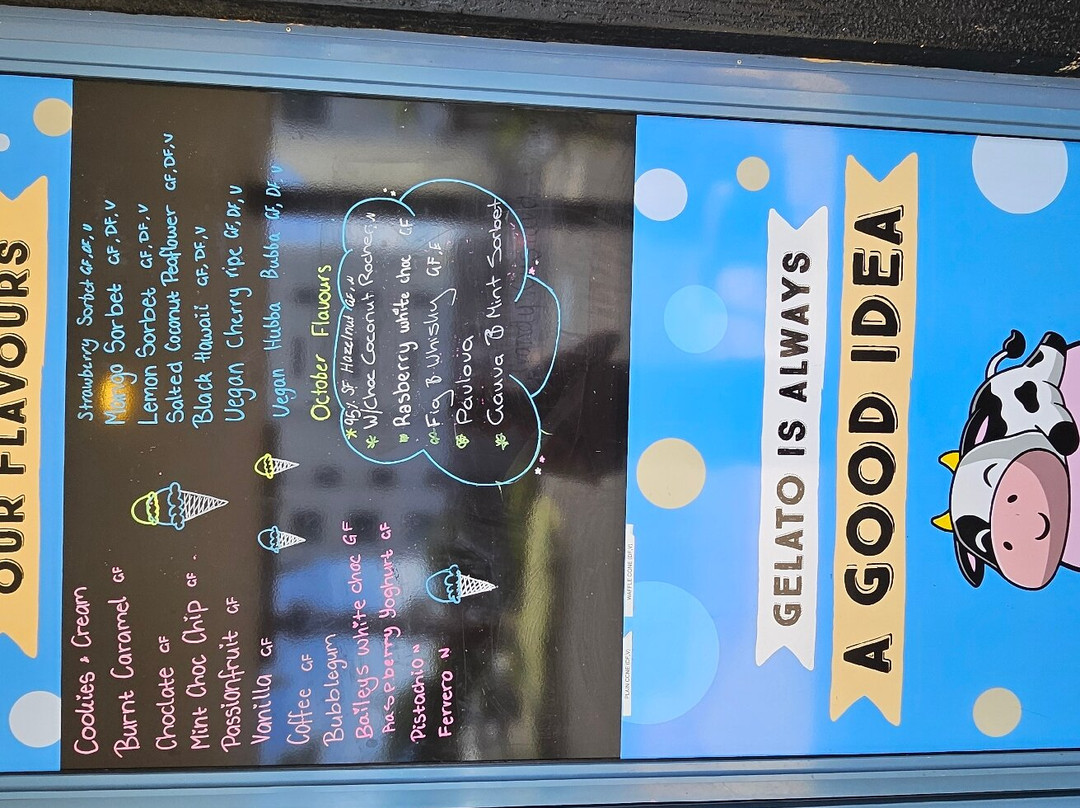 OUR FLAVOURS
Cookies & Cream
Burnt Caramel GF
Choclate GF
Mint Choc Chip GF
Passionfruit GF
Vanilla GF
Coffee GF
Bubblegum
Baileys White choc GF
Raspberry Yoghurt GF
Pistachio N
Ferrero N
Strawberry Sorbet GF, DF, V
Mango Sorbet GF, DF, V
Lemon Sorbet GF, DF, V
Salted Coconut Peaflower GF, DF, V
Black Hawaii GF, DF, V
Vegan Cherry ripe GF, DF, V
Vegan Hubba Bubba GF, DF, V
October Flavours
95% SF Hazelnut GF, N
W/Choc Coconut Rocher N
Rasberry white choc GF
Fig & Whisky GF, E
Pavlova
Gauva & Mint Sorbet
PLAIN CONE (DF,V)
WAFFLE CONE (DF,V)
GELATO IS ALWAYS
A GOOD IDEA